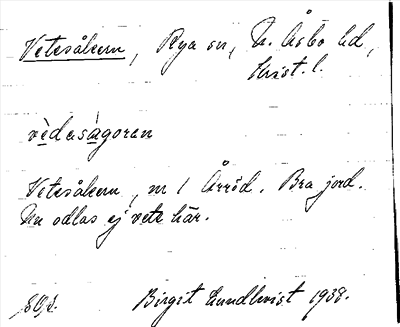 Vetesåkern, Rya sn, N. Åsbo hd,
Krist. l.
vèdesàgoran
Vetesåkern, m 1 Årröd. Bra jord.
Nu odlas ej vete här.
Birgit Lundkvist 1938.